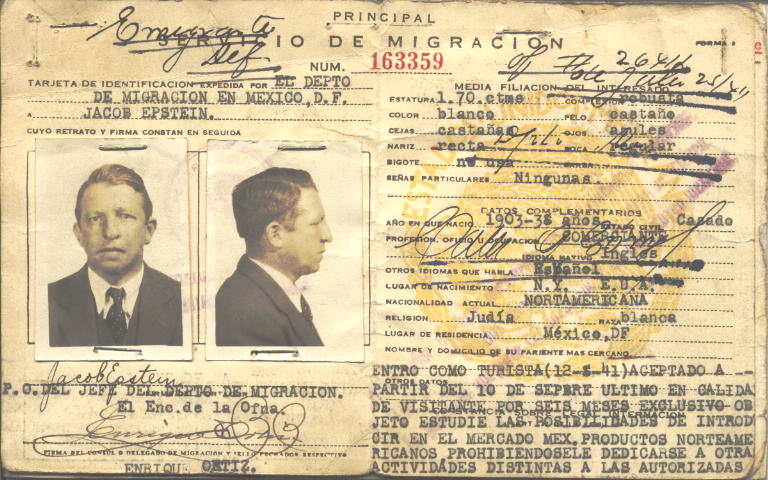 PRINCIPAL
Emigrante
SERVICIO DE MIGRACION
Def.
NUM. 163359
FORMA
25/41
TARJETA DE IDENTIFICACION EXPEDIDA POR EL DEPTO
DE MIGRACION EN MEXICO, D.F.
A JACOB EPSTEIN.
CUYO RETRATO Y FIRMA CONSTAN EN SEGUIDA
Jacob Epstein
P.O.DEL JEFE DEL DEPTO DE MIGRACION.
El Enc.de la Ofna.
FIRMA DEL CONSUL O DELEGADO DE MIGRACION Y SELLO FECHADOR RESPECTIVO
ENRIQUE ORTIZ.
MEDIA FILIACION DEL INTERESADO
ESTATURA 1.70 ctms COMPLEXION robusta
COLOR blanco PELO castaño
CEJAS castañas OJOS azules
NARIZ recta BOCA regular
BIGOTE no usa BARBA
SEÑAS PARTICULARES Ningunas.
DATOS COMPLEMENTARIOS
AÑO EN QUE NACIO 1903-38 años ESTADO CIVIL Casado
PROFESION, OFICIO U OCUPACION COMERCIANTE
IDIOMA NATIVO Inglés
OTROS IDIOMAS QUE HABLA Español
LUGAR DE NACIMIENTO N.Y. E.U.A.
NACIONALIDAD ACTUAL NORTAMERICANA
RELIGION Judía RAZA blanca
LUGAR DE RESIDENCIA México,DF
NOMBRE Y DOMICILIO DE SU PARIENTE MAS CERCANO
OTROS DATOS
ENTRO COMO TURISTA(12-8-41)ACEPTADO A --
PARTIR DEL 10 DE SEPBRE ULTIMO EN CALIDA
DE VISITANTE POR SEIS MESES EXCLUSIVO OB
CONSTANCIA SOBRE LEGAL INTERNACION
JETO ESTUDIE LAS POSIBILIDADES DE INTROD
CIR EN EL MERCADO MEX.PRODUCTOS NORTEAME
RICANOS PROHIBIENDOSELE DEDICARSE A OTRA
ACTIVIDADES DISTINTAS A LAS AUTORIZADAS